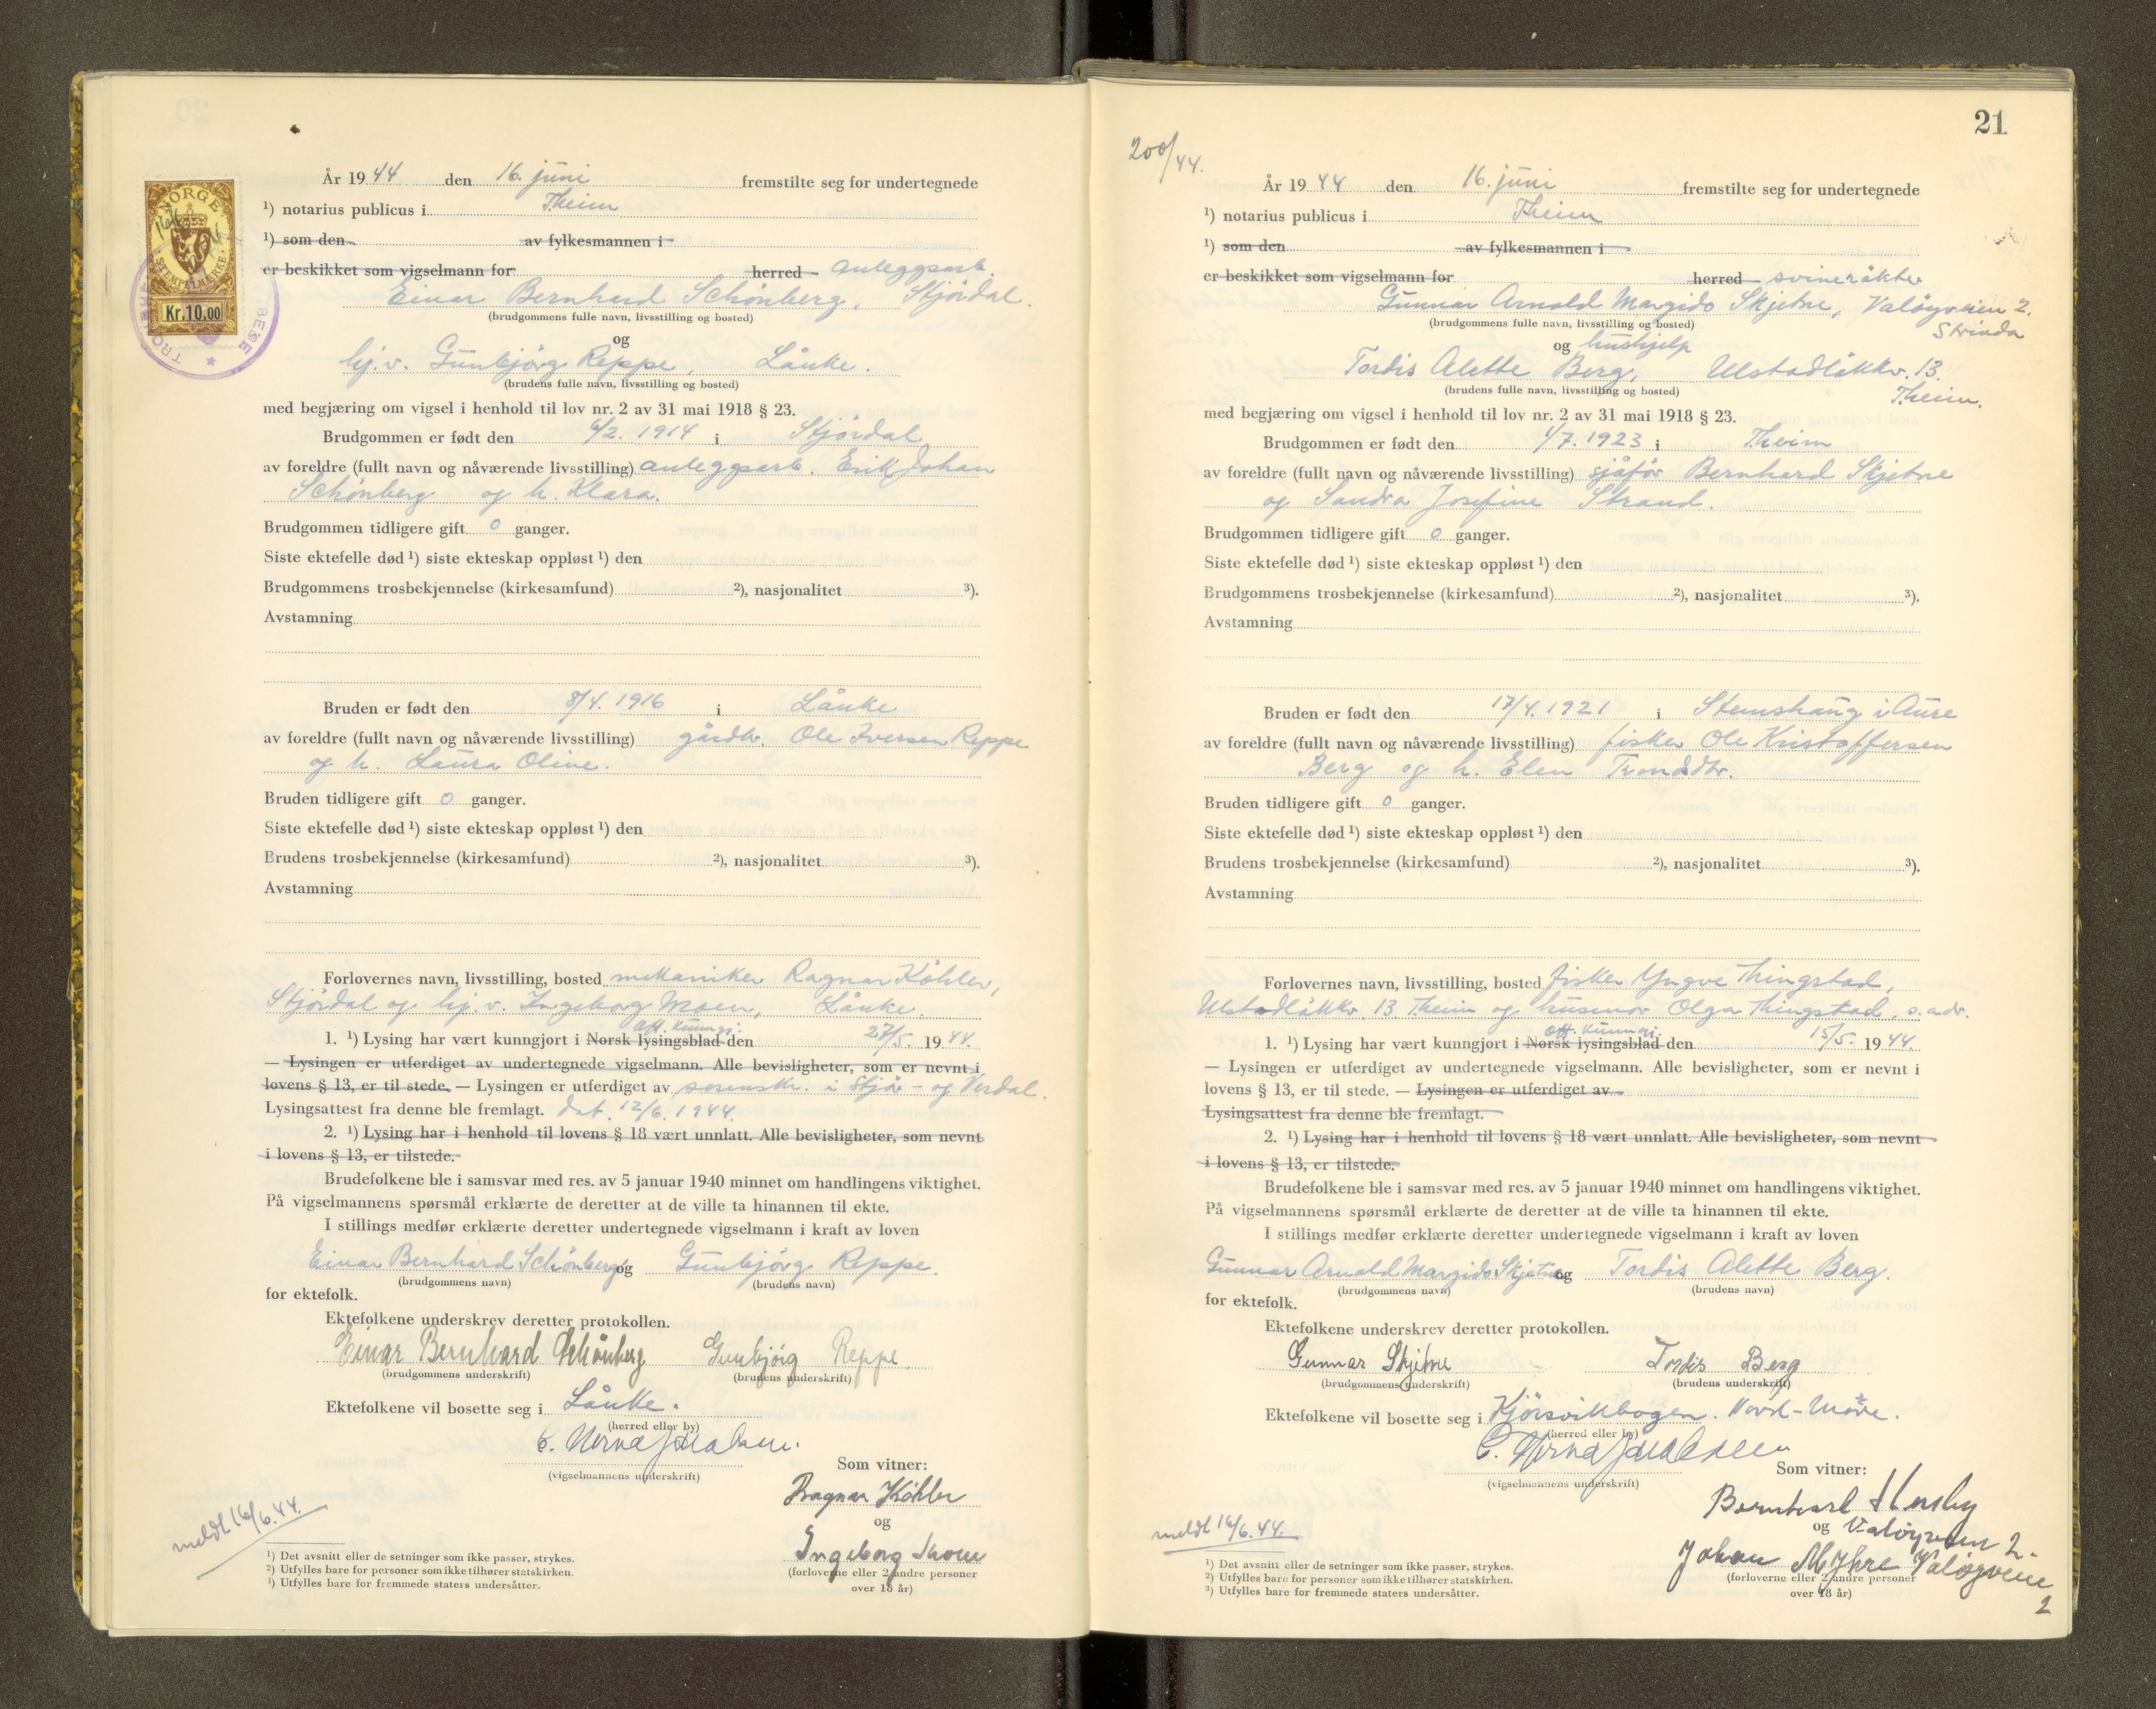 År 1944 den 16. juni fremstilte seg for undertegnede
¹) notarius publicus i T.heim
¹) som den av fylkesmannen i
er beskikket som vigselmann for herred anleggsarb.
Einar Bernhard Schönberg, Stjördal.
(brudgommens fulle navn, livsstilling og bosted)
og
hj.v. Gunbjörg Reppe, Lånke.
(brudens fulle navn, livsstilling og bosted)
med begjæring om vigsel i henhold til lov nr. 2 av 31 mai 1918 § 23.
Brudgommen er født den 6/2. 1914 i Stjördal
av foreldre (fullt navn og nåværende livsstilling) anleggsarb. Erik Johan
Schönberg og h. Klara.
Brudgommen tidligere gift 0 ganger.
Siste ektefelle død ¹) siste ekteskap oppløst ¹) den
Brudgommens trosbekjennelse (kirkesamfund) ²), nasjonalitet ³).
Avstamning
Bruden er født den 8/4. 1916 i Lånke
av foreldre (fullt navn og nåværende livsstilling) gårdbr. Ole Iversen Reppe
og h. Laura Oline.
Bruden tidligere gift 0 ganger.
Siste ektefelle død ¹) siste ekteskap oppløst ¹) den
Brudens trosbekjennelse (kirkesamfund) ²), nasjonalitet ³).
Avstamning
Forlovernes navn, livsstilling, bosted mekaniker Ragnar Köhler,
Stjördal og hj. v. Ingeborg Moen, Lånke.
off. kunngj.
1. ¹) Lysing har vært kunngjort i Norsk lysingsblad den 27/5. 1944.
— Lysingen er utferdiget av undertegnede vigselmann. Alle bevisligheter, som er nevnt i
lovens § 13, er til stede. — Lysingen er utferdiget av sorenskr. i Stjör- og Verdal.
Lysingsattest fra denne ble fremlagt. dat. 12/6. 1944.
2. ¹) Lysing har i henhold til lovens § 18 vært unnlatt. Alle bevisligheter, som nevnt
i lovens § 13, er tilstede.
Brudefolkene ble i samsvar med res. av 5 januar 1940 minnet om handlingens viktighet.
På vigselmannens spørsmål erklærte de deretter at de ville ta hinannen til ekte.
I stillings medfør erklærte deretter undertegnede vigselmann i kraft av loven
Einar Bernhard Schönberg og Gunbjörg Reppe.
(brudgommens navn) (brudens navn)
for ektefolk.
Ektefolkene underskrev deretter protokollen.
Einar Bernhard Schönberg Gunbjörg Reppe.
(brudgommens underskrift) (brudens underskrift)
Ektefolkene vil bosette seg i Lånke.
(herred eller by)
(vigselmannens underskrift)
Som vitner:
Ragnar Köhler
og
Ingeborg Moen
(forloverne eller 2 andre personer
over 18 år)
meldt 16/6.44.
¹) Det avsnitt eller de setninger som ikke passer, strykes.
²) Utfylles bare for personer som ikke tilhører statskirken.
³) Utfylles bare for fremmede staters undersåtter.
NORGE
STEMPELMERKE
Kr.10,00
21
200/44.
År 1944 den 16. juni fremstilte seg for undertegnede
¹) notarius publicus i T.heim
¹) som den av fylkesmannen i
er beskikket som vigselmann for herred svinerökter
Gunnar Arnold Margido Skjetne, Valöyveien 2.
Strinda
(brudgommens fulle navn, livsstilling og bosted)
og hushjelp
Tordis Alette Berg, Ulstadløkkv. 13.
T.heim.
(brudens fulle navn, livsstilling og bosted)
med begjæring om vigsel i henhold til lov nr. 2 av 31 mai 1918 § 23.
Brudgommen er født den 1/7. 1923 i T.heim
av foreldre (fullt navn og nåværende livsstilling) sjåfør Bernhard Skjetne
og Sandra Josefine Strand.
Brudgommen tidligere gift 0 ganger.
Siste ektefelle død ¹) siste ekteskap oppløst ¹) den
Brudgommens trosbekjennelse (kirkesamfund) ²), nasjonalitet ³).
Avstamning
Bruden er født den 17/4. 1921 i Stemshaug i Aure
av foreldre (fullt navn og nåværende livsstilling) fisker Ole Kristoffersen
Berg og h. Elen Trondsdtr.
Bruden tidligere gift 0 ganger.
Siste ektefelle død ¹) siste ekteskap oppløst ¹) den
Brudens trosbekjennelse (kirkesamfund) ²), nasjonalitet ³).
Avstamning
Forlovernes navn, livsstilling, bosted fisker Yngve Thingstad,
Ulstadløkkv. 13 T.heim og husmor Olga Thingstad, s. adr.
off. kunngj.
1. ¹) Lysing har vært kunngjort i Norsk lysingsblad den 15/5. 1944.
— Lysingen er utferdiget av undertegnede vigselmann. Alle bevisligheter, som er nevnt i
lovens § 13, er til stede. — Lysingen er utferdiget av
Lysingsattest fra denne ble fremlagt.
2. ¹) Lysing har i henhold til lovens § 18 vært unnlatt. Alle bevisligheter, som nevnt
i lovens § 13, er tilstede.
Brudefolkene ble i samsvar med res. av 5 januar 1940 minnet om handlingens viktighet.
På vigselmannens spørsmål erklærte de deretter at de ville ta hinannen til ekte.
I stillings medfør erklærte deretter undertegnede vigselmann i kraft av loven
Gunnar Arnold Margido Skjetne og Tordis Alette Berg.
(brudgommens navn) (brudens navn)
for ektefolk.
Ektefolkene underskrev deretter protokollen.
Gunnar Skjetne Tordis Berg
(brudgommens underskrift) (brudens underskrift)
Ektefolkene vil bosette seg i Kjörsvikbogen. Nord-Möre.
(herred eller by)
(vigselmannens underskrift)
Som vitner:
Bernhard
og Valöyveien 2.
Johan Myhre Valöyveien
2
(forloverne eller 2 andre personer
over 18 år)
meldt 16/6.44.
¹) Det avsnitt eller de setninger som ikke passer, strykes.
²) Utfylles bare for personer som ikke tilhører statskirken.
³) Utfylles bare for fremmede staters undersåtter.